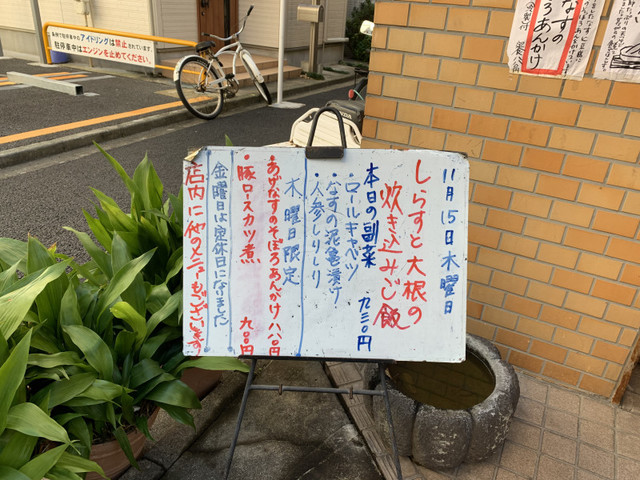 11月15日木曜日
しらすと大根の
炊き込みご飯
九三〇円
本日の副菜
・ロールキャベツ
・なすの泥亀漬け
・人参しりしり
木曜日限定
・あげなすのそぼろあんかけ 八八〇円
・豚ロースカツ煮 九〇〇円
金曜日は定休日になりました
店内に他のメニューもございます!
駐車場内での アイドリングは禁止されています。
駐停車中はエンジンを止めてください。
なすの
ろあんかけ